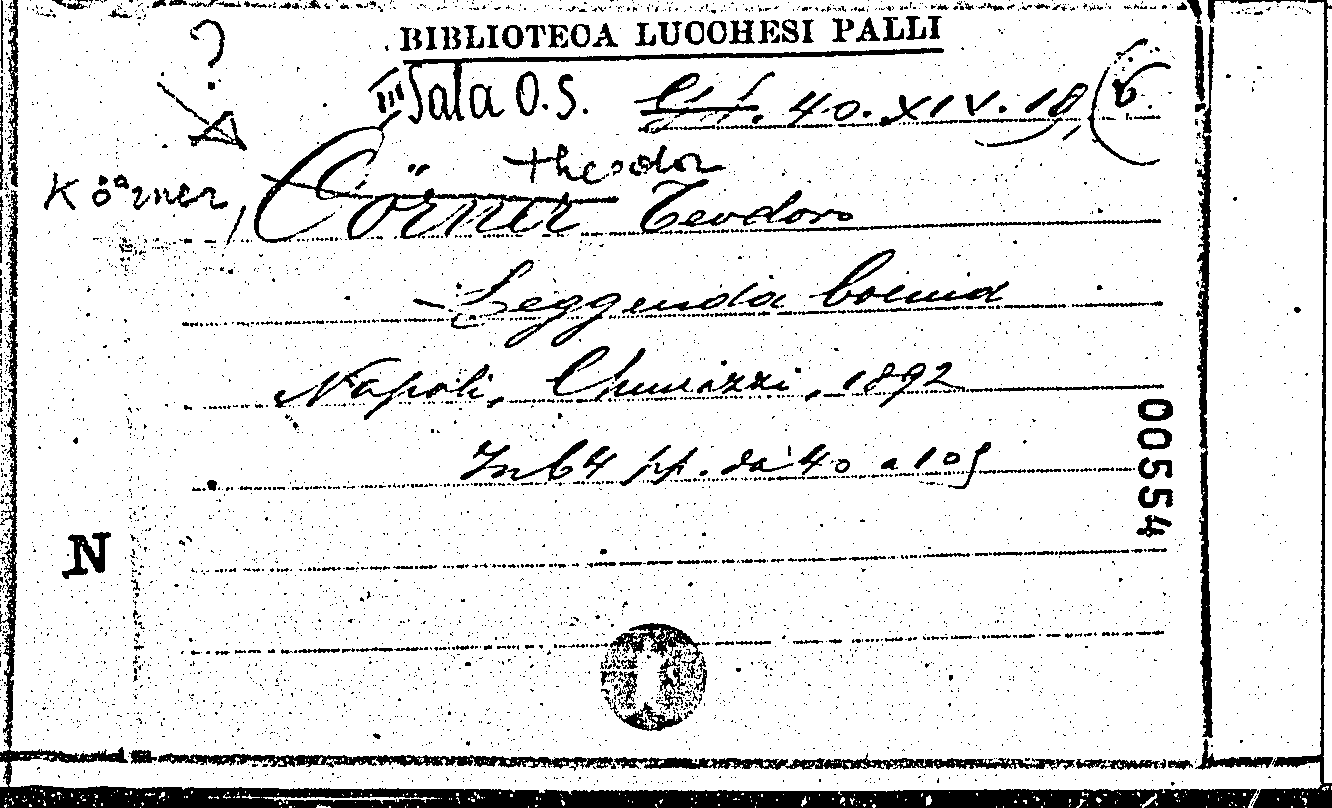 ?
BIBLIOTECA LUCCHESI PALLI
III Sala O.S. 40. XIV. 18, (6.
Theodor
Körner, Cörner Teodoro
- Leggenda boema
Napoli, Chiurazzi, 1892
In 64 pp. da 40 a 105
00554
N